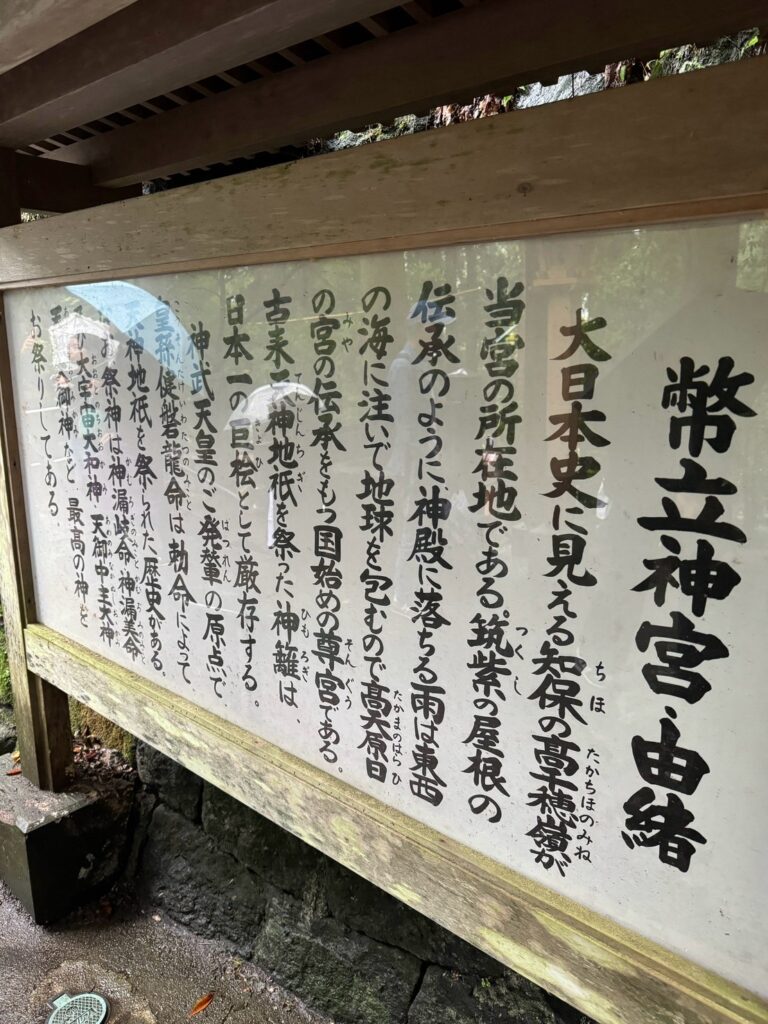 幣立神宮・由緒
大日本史に見える知保の高千穂嶺が
ちほ
たかちほのみね
当宮の所在地である。筑紫の屋根の
つくし
伝承のように神殿に落ちる雨は東西
の海に注いで地球を包むので高天原日
たかまのはらひ
の宮の伝承をもつ国始めの尊宮である。
みや
そんぐう
古来 神地祇を祭った神籬は、
てんじんちぎ
ひもろぎ
日本一の巨桧として厳存する。
きょひ
神武天皇のご発輦の原点で、
はつれん
皇孫健磐龍命は勅命によって
天神地祇を祭られた歴史がある。
祭神は神漏岐命・神漏美命
大宇宙大和神 天御中主大神
御神など 最高の神を
お祭りしてある